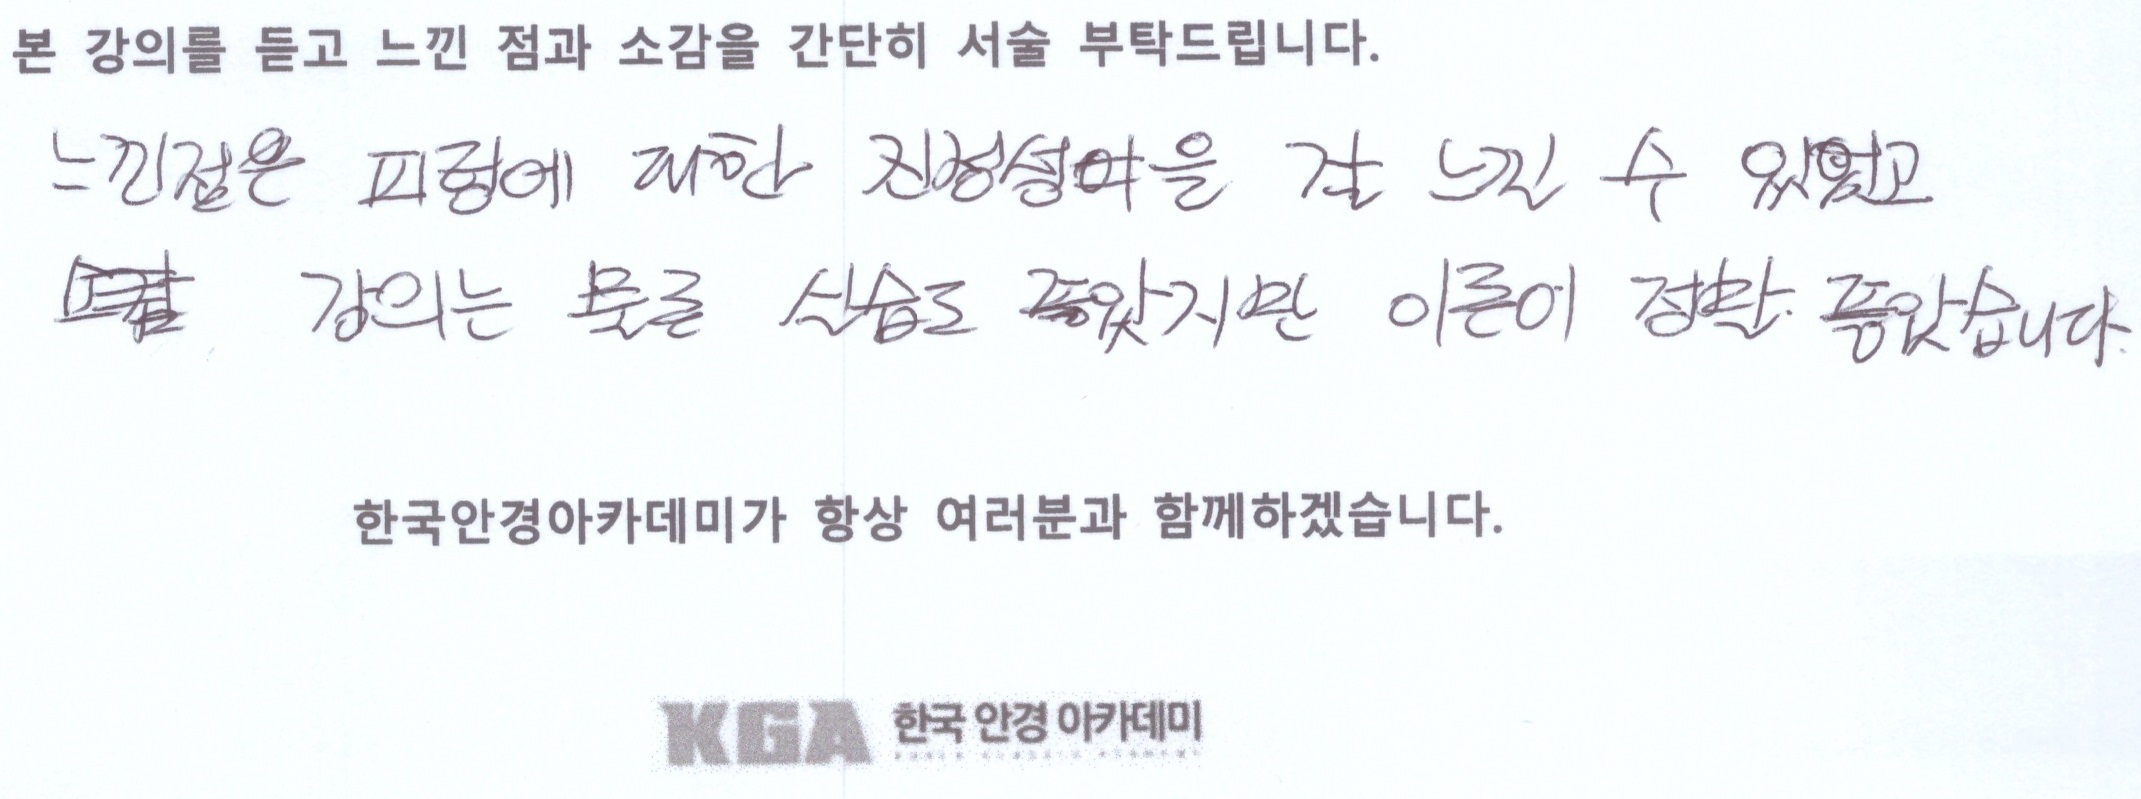 본 강의를 듣고 느낀 점과 소감을 간단히 서술 부탁드립니다.
느낀점은 피팅에 대한 진정성을 잘 느낄 수 있었고
강의는 물론 실습도 좋았지만 이론이 정말 좋았습니다.
한국안경아카데미가 항상 여러분과 함께하겠습니다.
KGA 한국 안경 아카데미